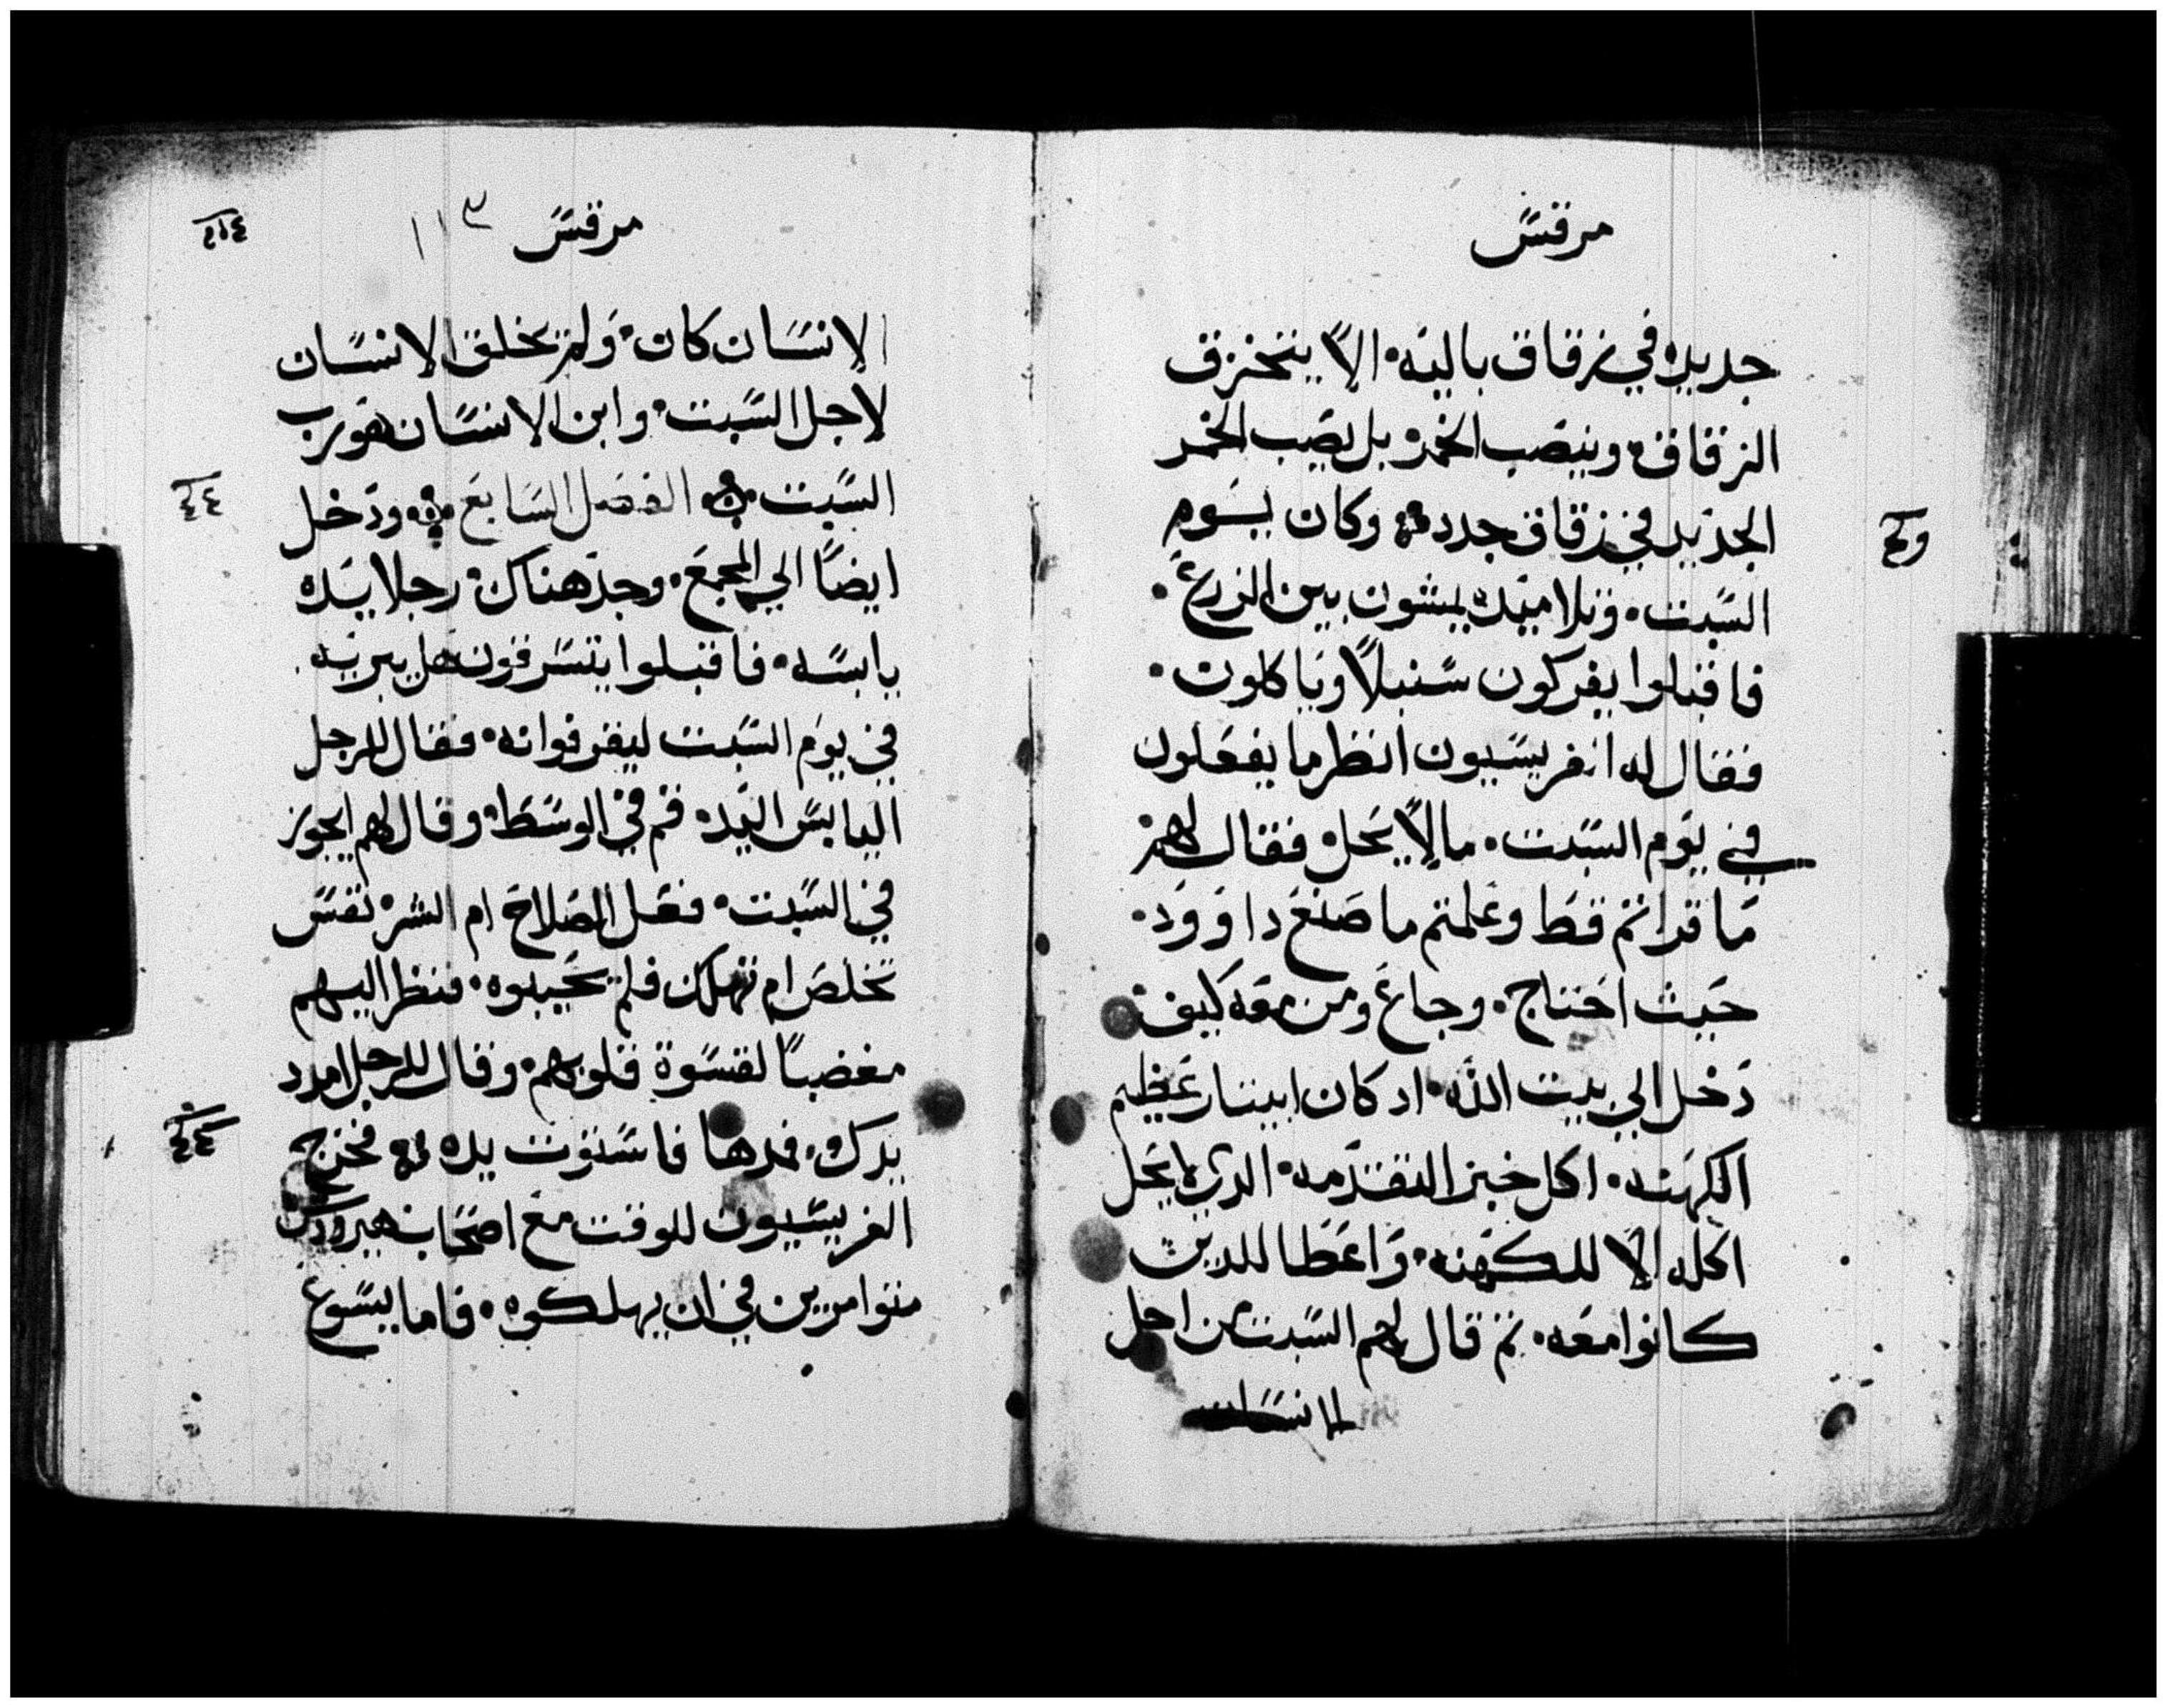 مرقس
جديده في زقاق باليه. الا يتخزق
الزقاق. وينصب الخمر. بل يصب الخمر
الجديد في زقاق جدد. وكان يوم
السبت. وتلاميده يمشون بين الزرع.
فاقبلوا يفركون سنبلا وياكلون.
فقال له الفريسيون انظر ما يفعلون
في يوم السبت. ما لا يحل. فقال لهم
ما قراتم قط وعلمتم ما صنع داوود.
حيث احتاج. وجاع ومن معه كيف.
دخل الي بيت الله. اد كان ابيتار عظيم
الكهنه. اكل خبز التقدمه. الدي لا يحل
اكله الا للكهنه. واعطا للدين
كانوا معه. تم قال لهم السبت من اجل
الانسان
مرقس ١١٣
الانسان كان. ولم يخلق الانسان
لاجل السبت. وابن الانسان هو رب
السبت. الفصل السابع. ودخل
ايضا الي المجمع. وجد هناك. رجلا يده
يابسه. فاقبلوا يتسرفون هل يبريه.
في يوم السبت ليقرفوا به. فقال للرجل
اليابس اليد. قم في الوسط. وقال لهم ايجوز
في السبت. فعل الصلاح ام الشر. نفس
تخلص ام تهلك فلم يجيبوه. فنظر اليهم
مغضبا لقسوة قلوبهم. وقال للرجل امدد
يدك. فمدها فاستوت يده. فخرج
الفريسيون للوقت مع اصحاب هيرودس
متوامرين في ان يهلكوه. فاما يسوع